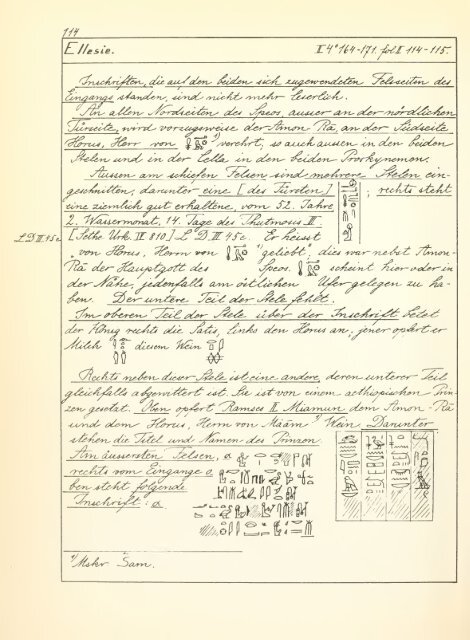 114
Ellesie. II 4° 164-171. fol II 114-115.
Inschriften, die auf den beiden sich zugewendeten Felsseiten des
Eingangs standen, sind nicht mehr leserlich.
An allen Nordseiten des Speos, ausser an der nördlichen
Türseite, wird vorzugsweise der Amon Rā, an der Südseite
Horus, Herr von ¹) verehrt, so auch aussen in den beiden
Stelen und in der Cella in den beiden Proskynemen.
Aussen am schiefen Felsen sind mehrere Stelen ein-
geschnitten, darunter eine [des Türoten] ; rechts steht
eine ziemlich gut erhaltene, vom 52. Jahre
2. Wassermonat, 14. Tage des Thutmosis III.
L D III 45e [Sethe Urk. IV 810] L D III 45e Er heisst
„von Horus, Herrn von ¹) geliebt; dies war nebst Amon-
Rā der Hauptgott des Speos. scheint hier oder in
der Nähe, jedenfalls am östlichen Ufer gelegen zu ha-
ben. Der untere Teil der Stele fehlt.
Im oberen Teil der Stele über der Inschrift betet
der König rechts die Satis, links den Horus an; jener opfert er
Milch diesem Wein
Rechts neben dieser Stele ist eine andere, deren unterer Teil
gleichfalls abgewittert ist. Sie ist von einem aethiopischen Prin-
zen gesetzt. Hier opfert Ramses II Miamun dem Amon-Rā
und dem Horus, Herrn von Māām ¹) Wein. Darunter
stehen die Titel und Namen des Prinzen
Am äussersten Felsen,
rechts vom Eingange
ben steht folgende
Inschrift:
¹) Mskr Sam.